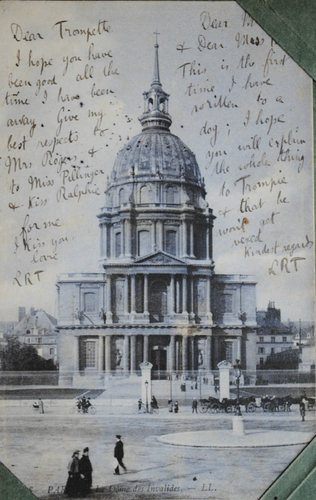 Dear Trompette
I hope you have
been good all the
time I have been
away. Give my
best respects to
Mrs Roger &
to Miss Pillinger
& Kiss Ralphie
for me
I kiss you
love
LRT
Dear M
& Dear Miss
This is the first
time I have
written to a
dog; I hope
you will explain
the whole thing
to Trompie
& that he
won't get
vexed
Kindest regards
LRT
Le Dôme des Invalides. — LL.